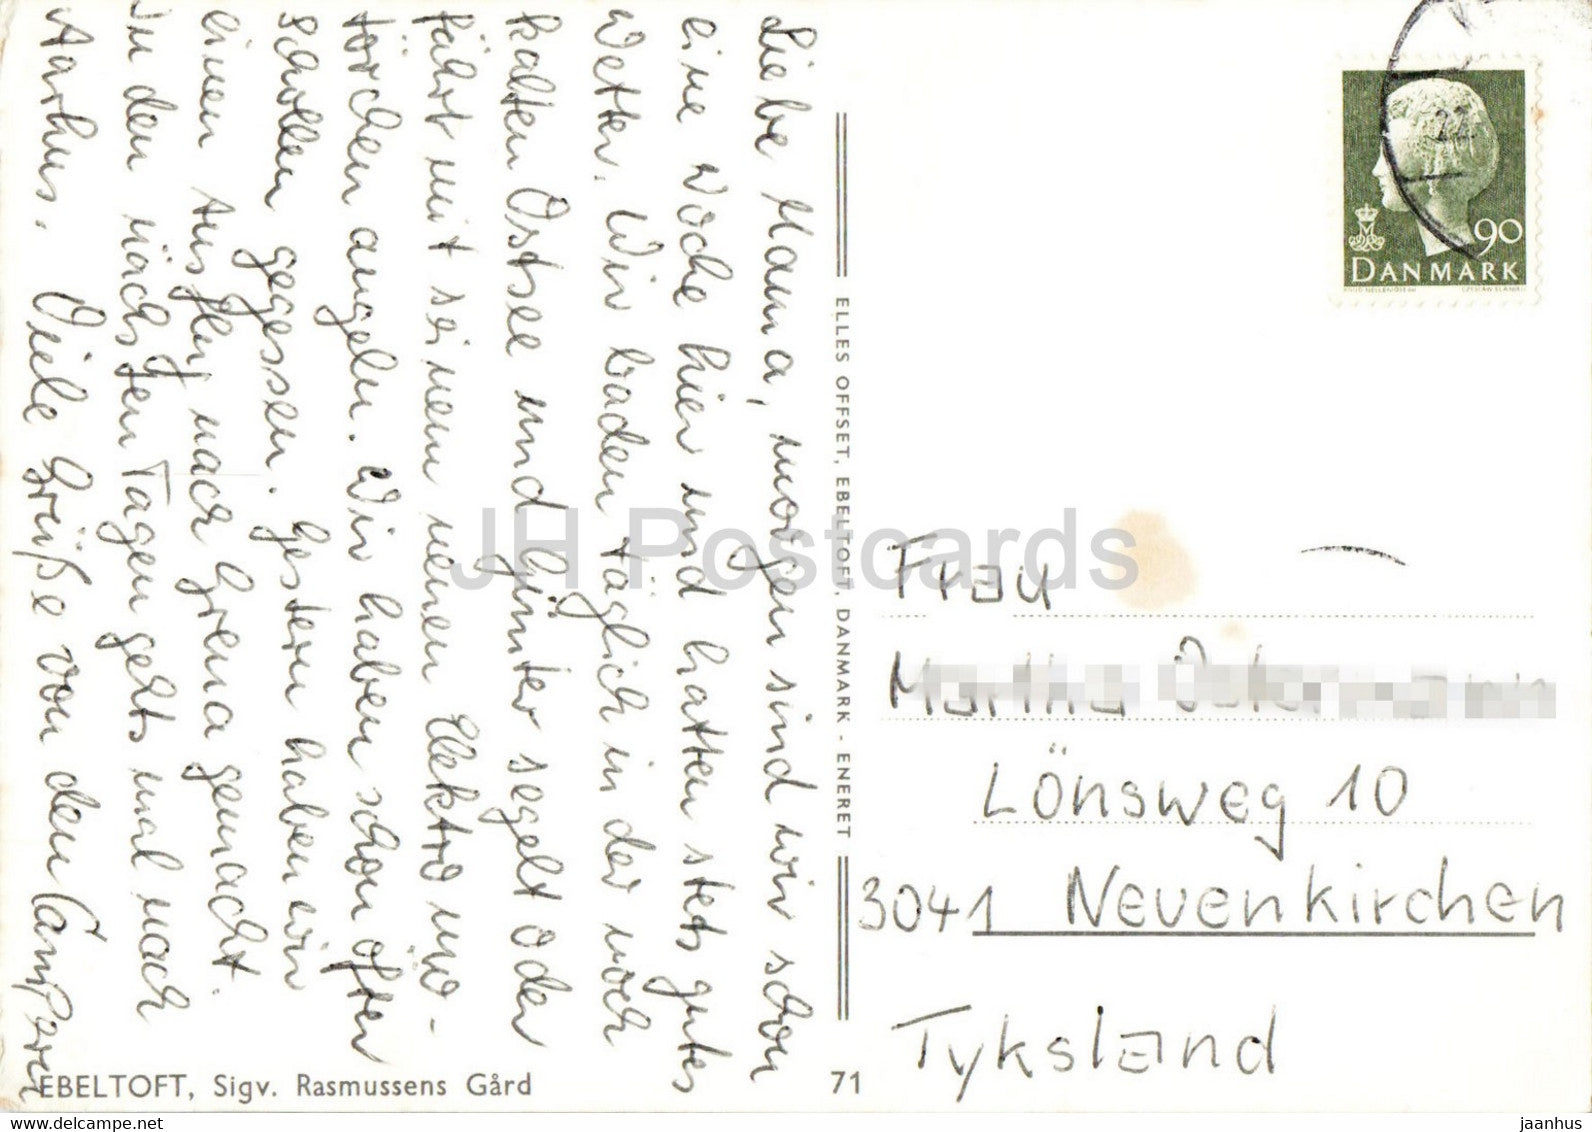 Liebe Mama, morgen sind wir schon
eine Woche hier und hatten stets gutes
Wetter. Wir baden täglich in der noch
kalten Ostsee und Günter segelt oder
fährt mit seinem neuen Elektromo-
törchen angeln. Wir haben schon öfter
Schollen gegessen. Gestern haben wir
einen Ausflug nach Grena gemacht.
In den nächsten Tagen gehts mal nach
Aarhus. Viele Grüße von den Campern
EBELTOFT, Sigv. Rasmussens Gård
71
ELLES OFFSET, EBELTOFT, DANMARK - ENERET
22
90
DANMARK
Frau
Lönsweg 10
3041 Neuenkirchen
Tyksland
JH Postcards
delcampe.net
jaanhus